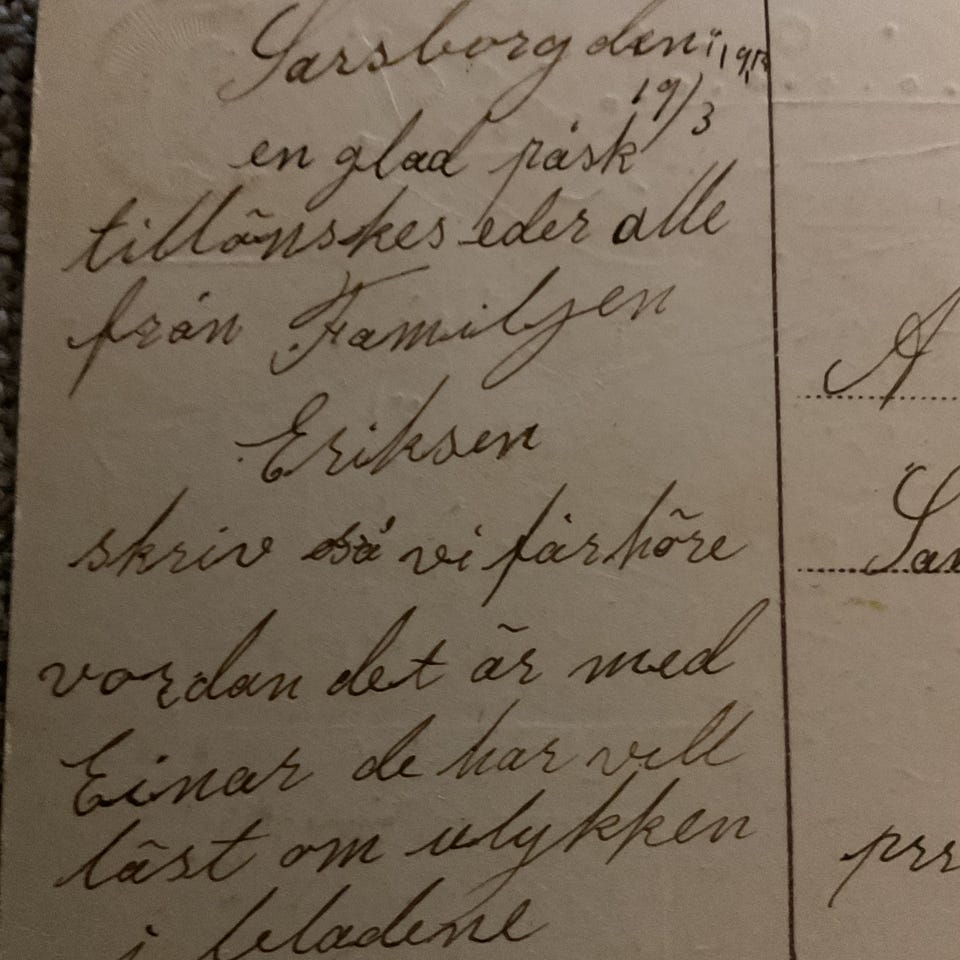 Sarsborg den
19/3
en glad påsk
tillõnskes eder alle
från Familjen
Eriksen
skriv så vi får hõre
vordan det ãr med
Einar de har vell
lãst om ulykken
i bladene
A
Sar
prr